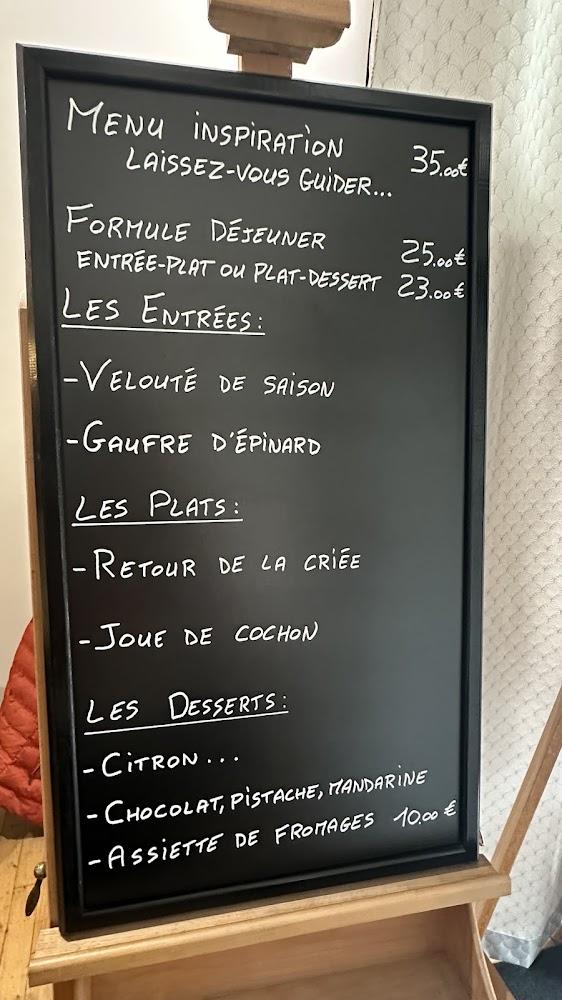 MENU INSPIRATION 35.00€
LAISSEZ-VOUS GUIDER...
FORMULE DÉJEUNER 25.00€
ENTRÉE-PLAT OU PLAT-DESSERT 23.00€
LES ENTRÉES:
-VELOUTÉ DE SAISON
-GAUFRE D'ÉPINARD
LES PLATS:
-RETOUR DE LA CRIÉE
-JOUE DE COCHON
LES DESSERTS:
-CITRON...
-CHOCOLAT, PISTACHE, MANDARINE
-ASSIETTE DE FROMAGES 10.00€